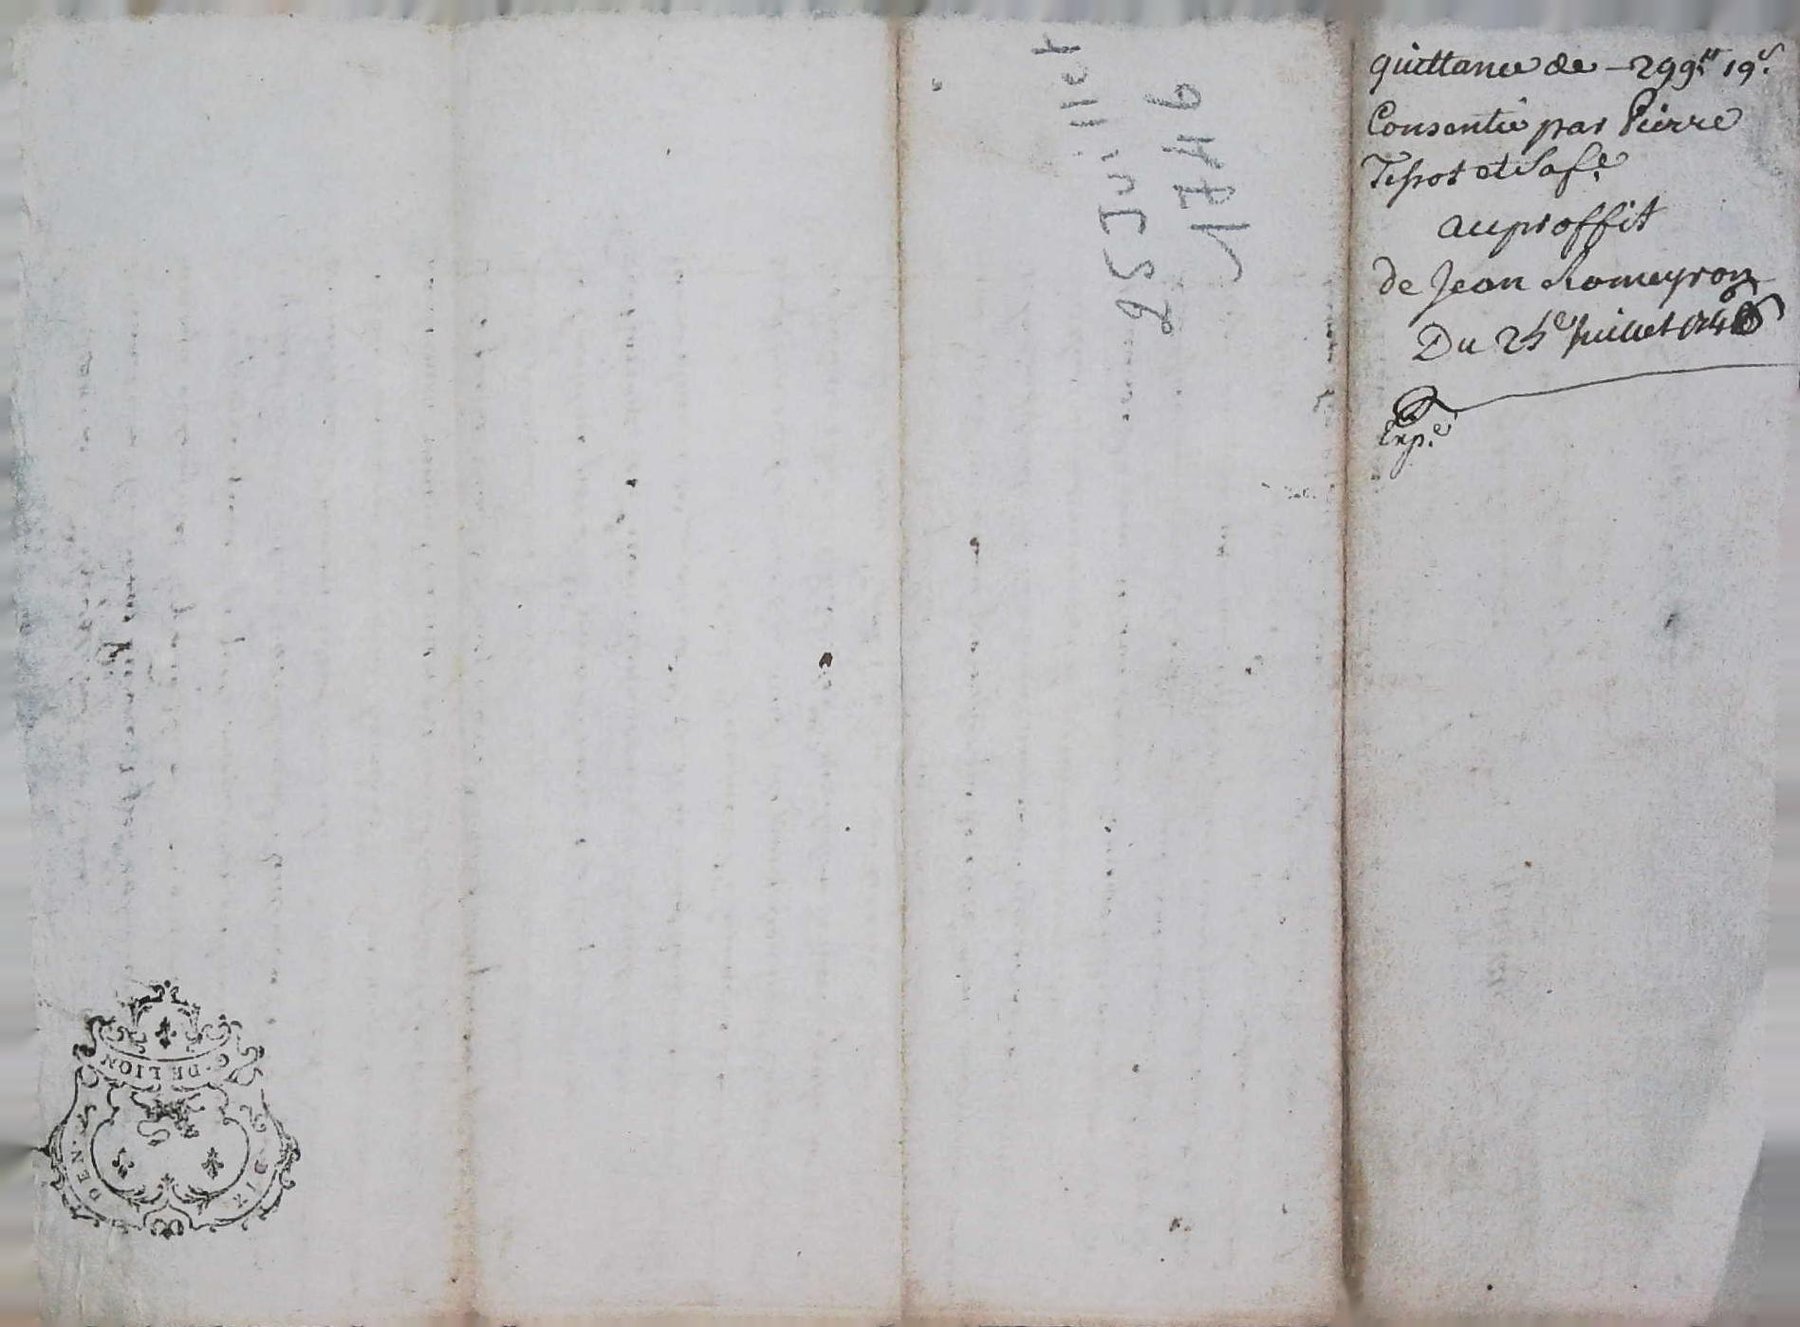 quittance de - 299.tt 19.s
Consentie par Pierre
Tissot et Sa fe.
au proffit
de Jean Romeyron
Du 25e Juillet 1746
Expe.
25 Juillet
1746
G. DE LION
DIX DEN.